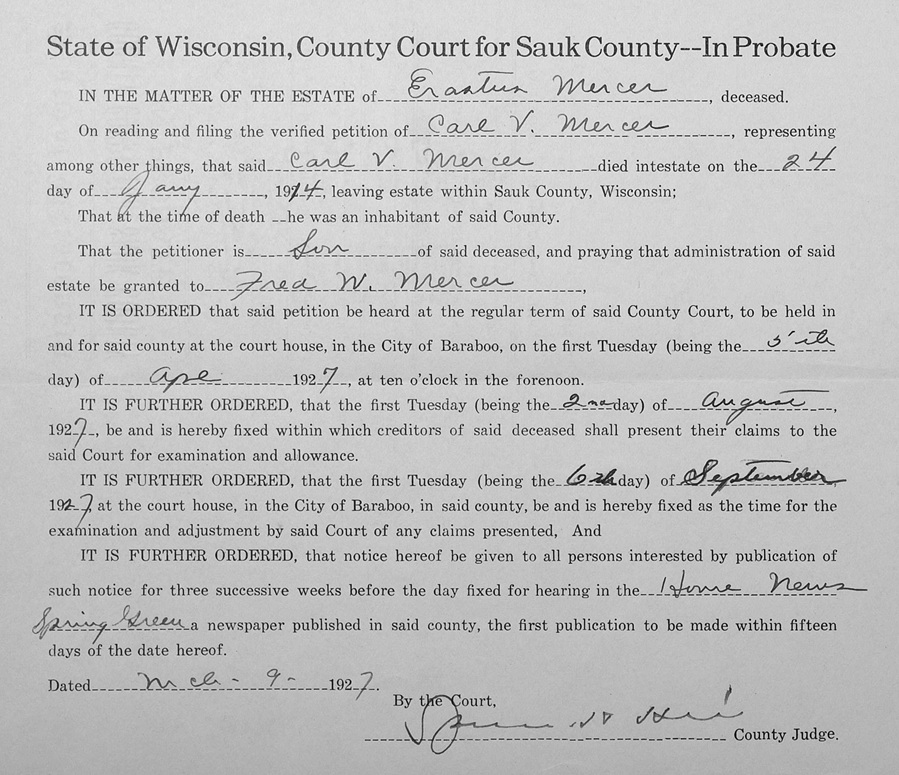 State of Wisconsin, County Court for Sauk County--In Probate
IN THE MATTER OF THE ESTATE of Erastus Mercer, deceased.
On reading and filing the verified petition of Carl V. Mercer, representing
among other things, that said Carl V. Mercer died intestate on the 24
day of Jany, 1914, leaving estate within Sauk County, Wisconsin;
That at the time of death __he was an inhabitant of said County.
That the petitioner is Son of said deceased, and praying that administration of said
estate be granted to Fred W. Mercer,
IT IS ORDERED that said petition be heard at the regular term of said County Court, to be held in
and for said county at the court house, in the City of Baraboo, on the first Tuesday (being the 5'th
day) of Apr 1927, at ten o'clock in the forenoon.
IT IS FURTHER ORDERED, that the first Tuesday (being the 2nd day) of August,
1927, be and is hereby fixed within which creditors of said deceased shall present their claims to the
said Court for examination and allowance.
IT IS FURTHER ORDERED, that the first Tuesday (being the 6th day) of September,
1927, at the court house, in the City of Baraboo, in said county, be and is hereby fixed as the time for the
examination and adjustment by said Court of any claims presented, And
IT IS FURTHER ORDERED, that notice hereof be given to all persons interested by publication of
such notice for three successive weeks before the day fixed for hearing in the Home News
Spring Green a newspaper published in said county, the first publication to be made within fifteen
days of the date hereof.
Dated Mch - 9 - 1927.
By the Court,
County Judge.